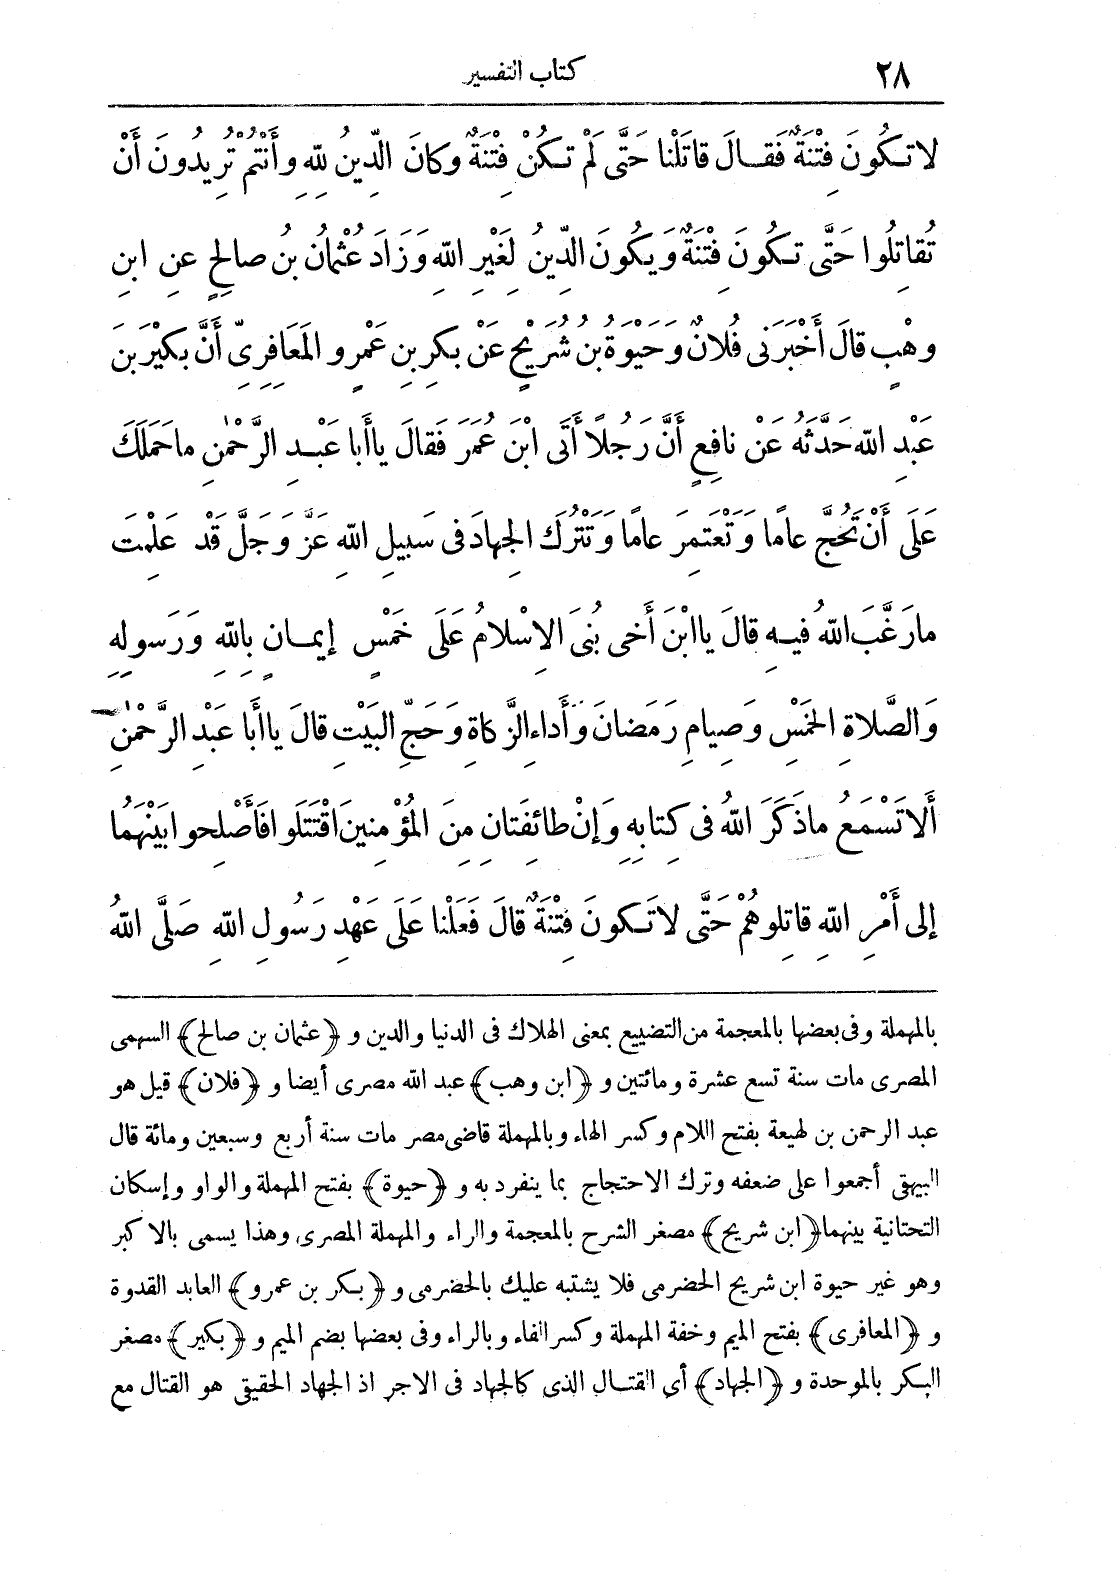 ٢٨
كتاب التفسير
لا تَكُونَ فِتْنَةٌ فَقَالَ قاتَلْنا حَتَّى لَمْ تَكُنْ فِتْنَةٌ وكانَ الدِّينُ لِلّهِ وأَنْتُمْ تُرِيدُونَ أَنْ
تُقاتِلُوا حَتَّى تَكُونَ فِتْنَةٌ وَيَكُونَ الدِّينُ لِغَيْرِ اللهِ وَزَادَ عُثْمَانُ بنُ صالِحٍ عنِ ابنِ
وهْبٍ قالَ أَخْبَرَنِى فُلانٌ وَحَيْوَةُ بنُ شُرَيْحٍ عَنْ بكرِ بنِ عَمْرٍو المَعَافِرِىِّ أَنَّ بكَيْرَ بنَ
عَبْدِ اللهِ حَدَّثَهُ عَنْ نافِعٍ أَنَّ رَجُلًا أَتَى ابْنَ عُمَرَ فَقالَ ياأَبا عَبْدِ الرَّحْمٰنِ ماحَمَلَكَ
عَلَى أَنْ تَحُجَّ عامًا وَتَعْتَمِرَ عامًا وَتَتْرُكَ الجِهادَ فى سَبِيلِ اللهِ عَزَّ وَجَلَّ قَدْ عَلِمْتَ
مارَغَّبَ اللهُ فِيهِ قالَ ياابْنَ أَخِى بُنِىَ الإِسْلامُ عَلَى خَمْسٍ إِيمانٍ بِاللهِ وَرَسولِهِ
وَالصَّلاةِ الخَمْسِ وَصِيامِ رَمَضانَ وَأَداءِ الزَّكاةِ وَحَجِّ البَيْتِ قالَ ياأَبا عَبْدِ الرَّحْمٰنِ
أَلا تَسْمَعُ ماذَكَرَ اللهُ فى كِتابِهِ وَإِنْ طائِفَتانِ مِنَ المُؤْمِنِينَ اقْتَتَلُوا فَأَصْلِحوا بَيْنَهُما
إلى أَمْرِ اللهِ قاتِلُوهُمْ حَتَّى لاتَكونَ فِتْنَةٌ قالَ فَعَلْنا عَلَى عَهْدِ رَسُولِ اللهِ صَلَّى اللهُ
بالمهملة وفى بعضها بالمعجمة من التضييع بمعنى الهلاك فى الدنيا والدين و ﴿عثمان بن صالح﴾ السهمى
المصرى مات سنة تسع عشرة ومائتين و ﴿ابن وهب﴾ عبد الله مصرى أيضا و ﴿فلان﴾ قيل هو
عبد الرحمن بن لهيعة بفتح اللام وكسر الهاء وبالمهملة قاضى مصر مات سنة أربع وسبعين ومائة قال
البيهقى أجمعوا على ضعفه وترك الاحتجاج بما ينفرد به و ﴿حيوة﴾ بفتح المهملة والواو وإسكان
التحتانية بينهما ﴿ابن شريح﴾ مصغر الشرح بالمعجمة والراء والمهملة المصرى وهذا يسمى بالاكبر
وهو غير حيوة ابن شريح الحضرمى فلا يشتبه عليك بالحضرمى و ﴿بكر بن عمرو﴾ العابد القدوة
و ﴿المعافرى﴾ بفتح الميم وخفة المهملة وكسر الفاء وبالراء وفى بعضها بضم الميم و ﴿بكير﴾ مصغر
البكر بالموحدة و ﴿الجهاد﴾ أي القتال الذى كالجهاد فى الاجر اذ الجهاد الحقيقى هو القتال مع